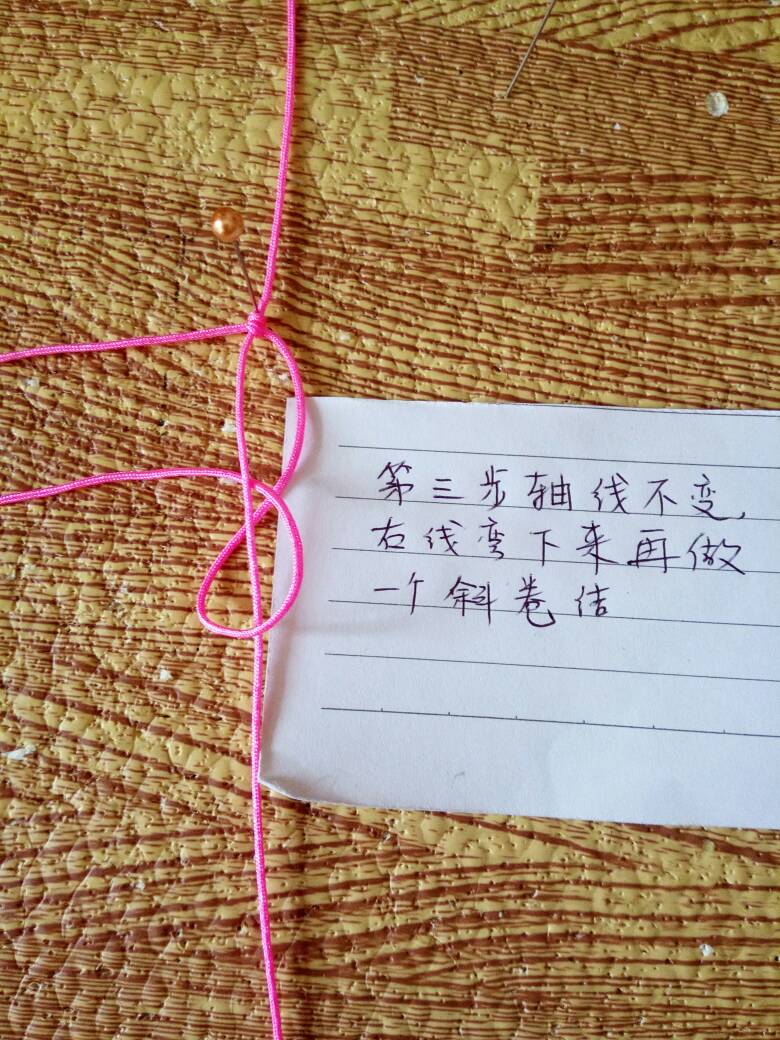 第三步轴线不变，
右线弯下来再做
一个斜卷结